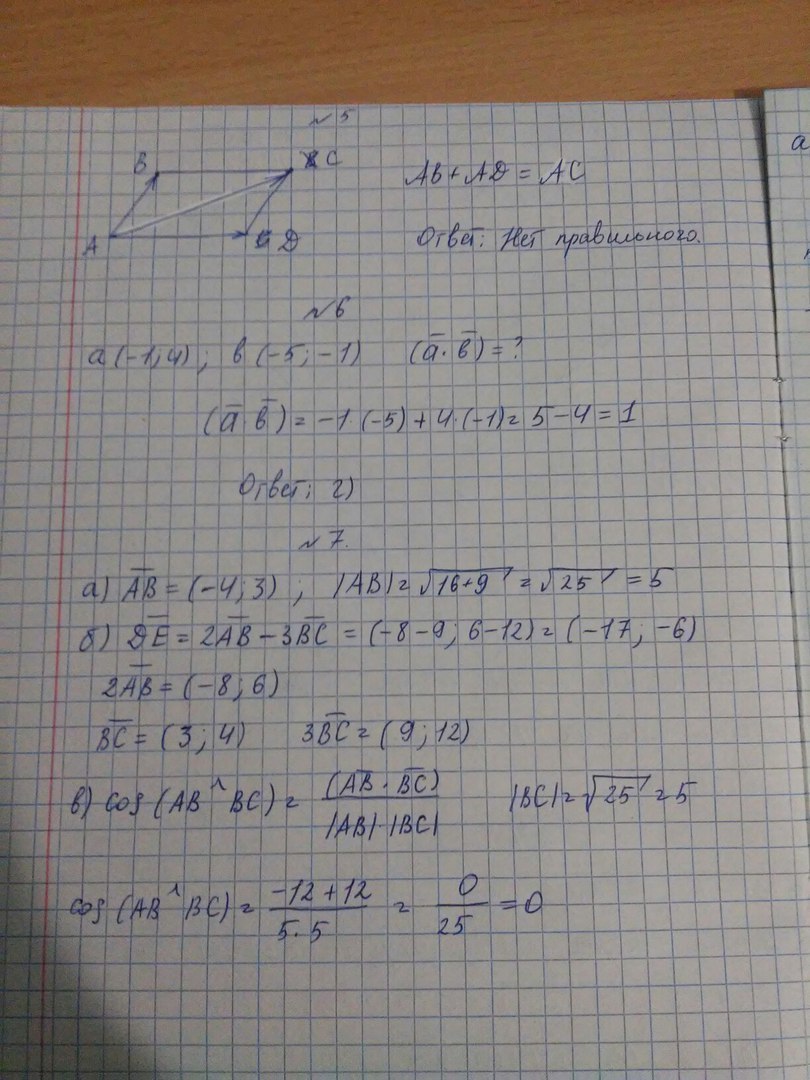 №5
B C
AB + AD = AC
A D
Ответ: Нет правильного.
№6
a (-1; 4) ; b (-5; -1) (a̅ · b̅) = ?
(a̅ · b̅) = -1 · (-5) + 4 · (-1) = 5 - 4 = 1
Ответ: г)
№7.
а) A̅B̅ = (-4; 3) ; |AB| = √16+9 = √25 = 5
б) D̅E̅ = 2A̅B̅ - 3B̅C̅ = (-8-9; 6-12) = (-17; -6)
2A̅B̅ = (-8; 6)
B̅C̅ = (3; 4) 3B̅C̅ = (9; 12)
в) cos (AB ^ BC) = (A̅B̅ · B̅C̅) / |AB| · |BC| |BC| = √25 = 5
cos (AB ^ BC) = -12 + 12 / 5 · 5 = 0 / 25 = 0
а